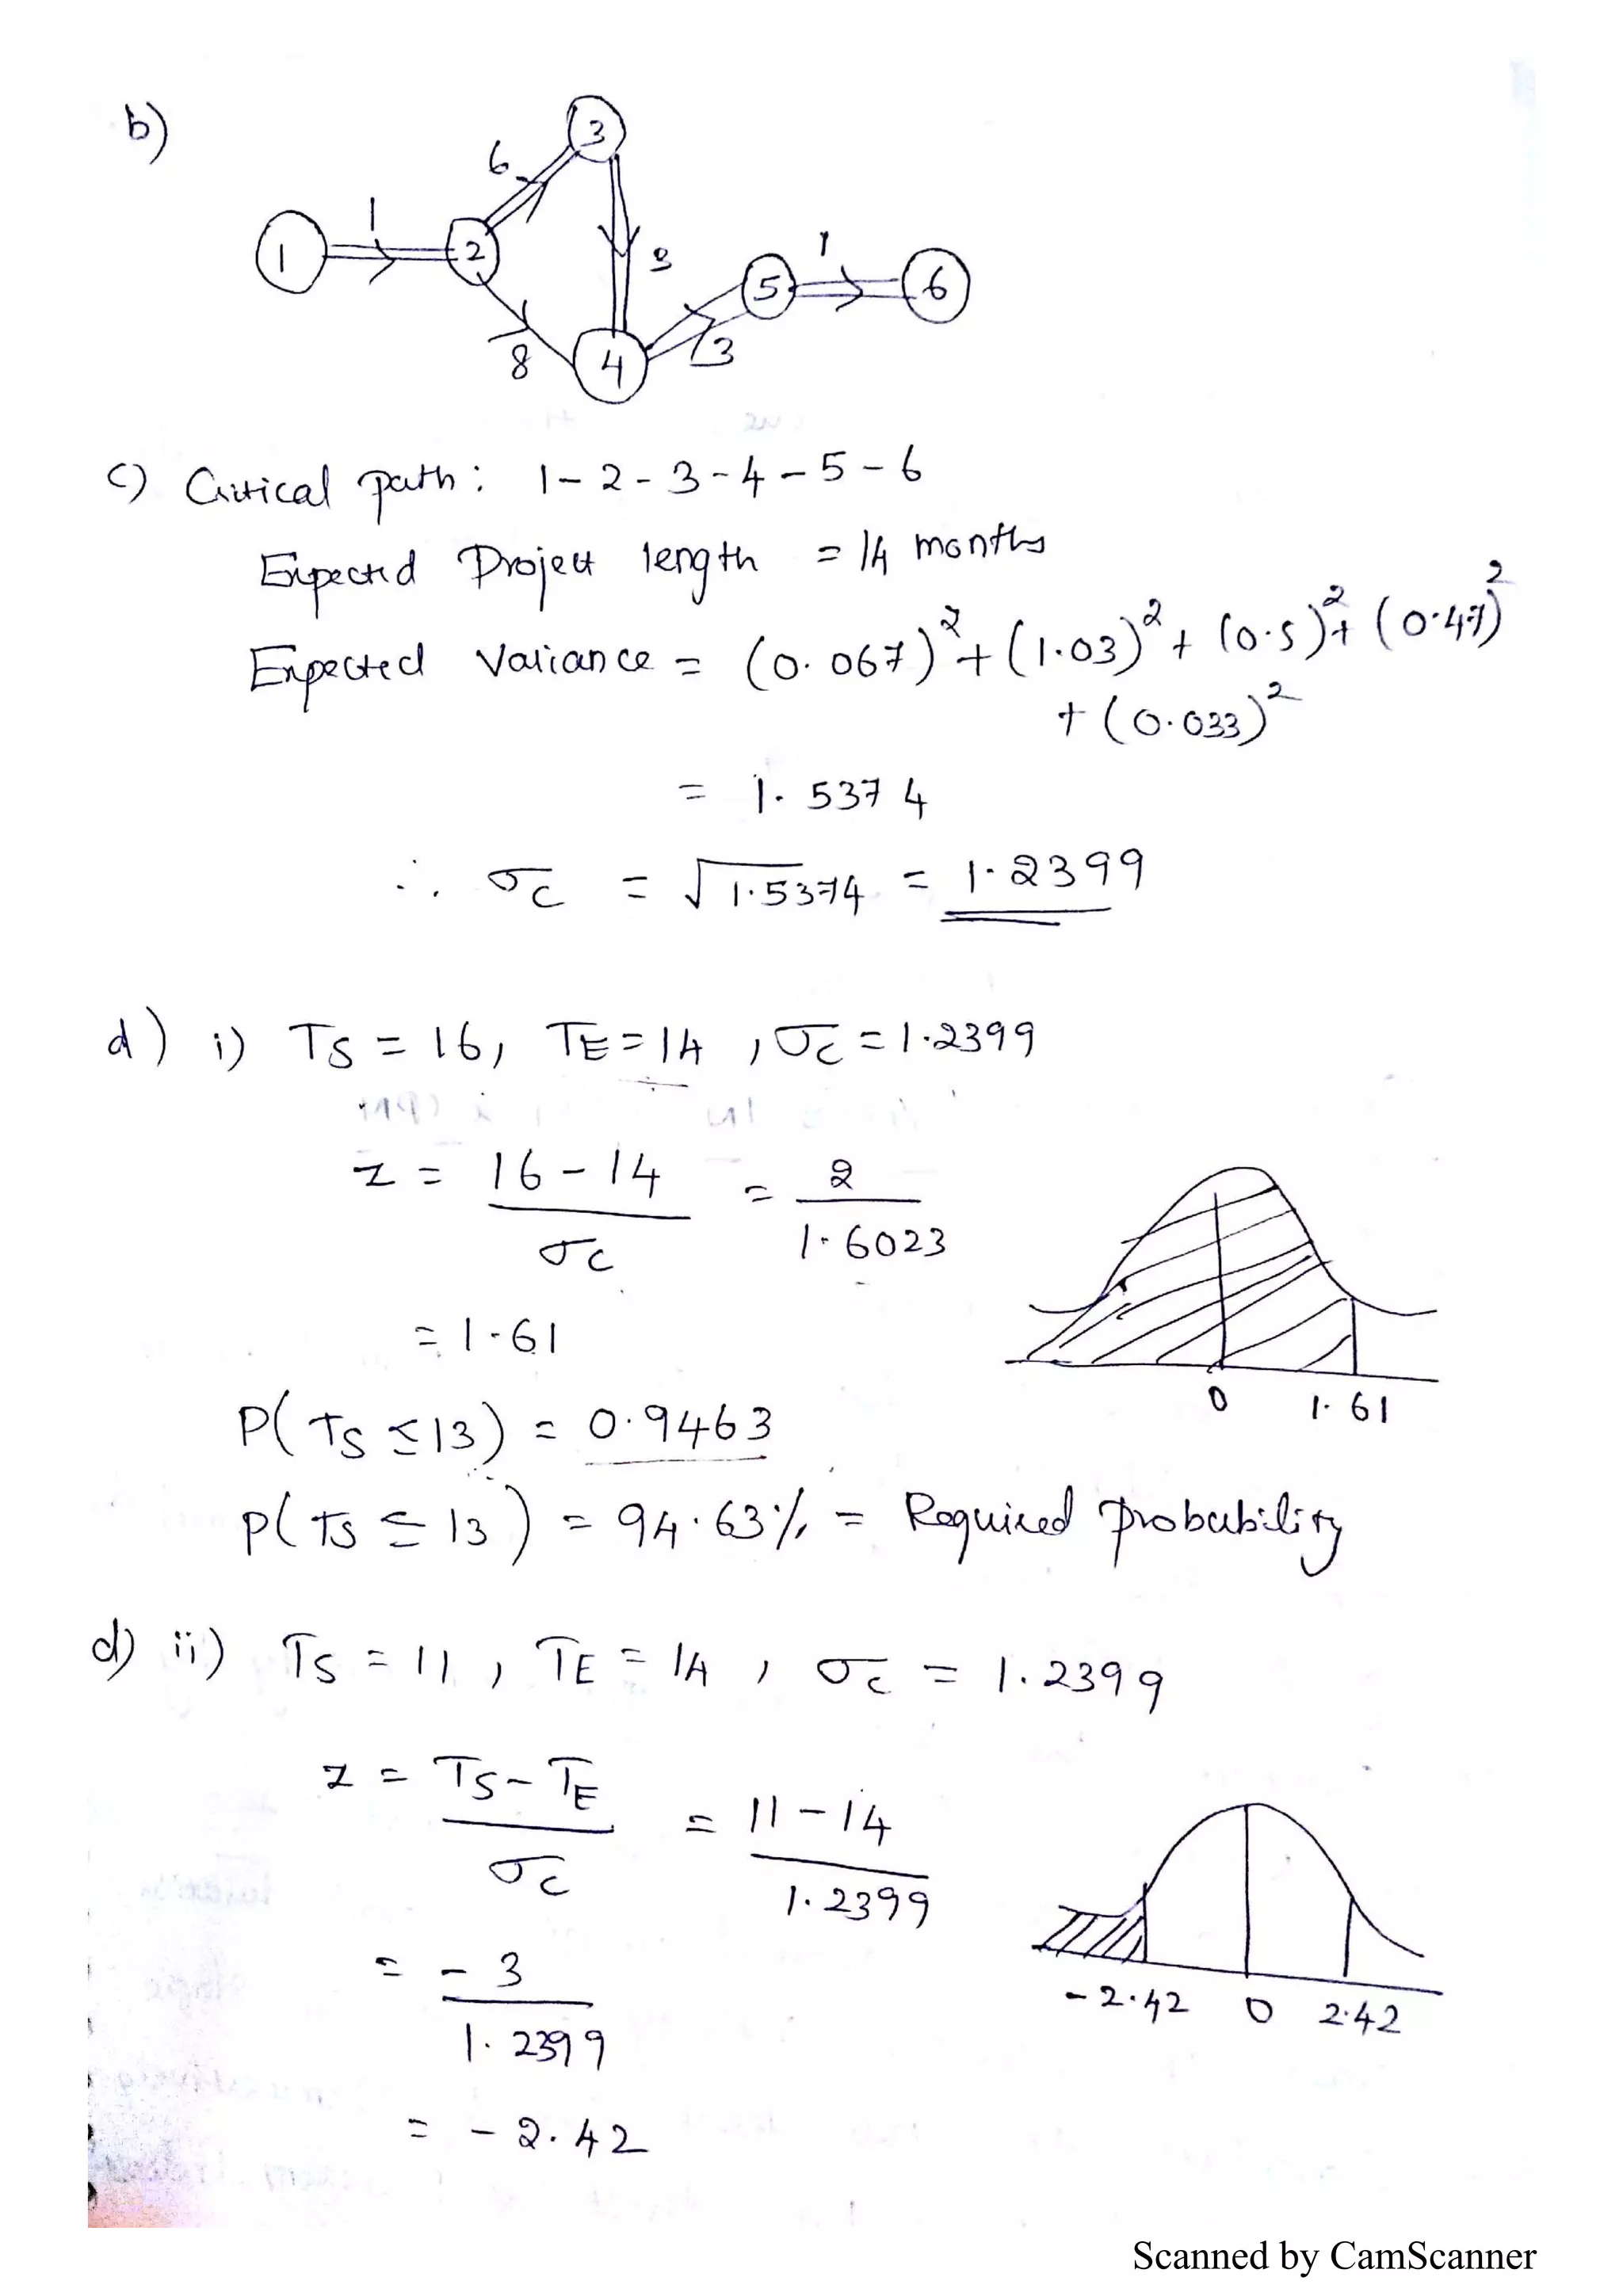 b)
3
6
1
1
2
3
1
5
6
8
4
3
c) Critical path : 1 - 2 - 3 - 4 - 5 - 6
Expected Project length = 14 months
Expected Variance = (0.067)² + (1.03)² + (0.5)² + (0.47)²
+ (0.033)²
= 1.5374
∴ σc = √1.5374 = 1.2399
d) i) TS = 16, TE = 14 , σc = 1.2399
z = 16 - 14 / σc = 2 / 1.6023
= 1.61
0 1.61
P( TS ≤ 13) = 0.9463
P( TS ≤ 13 ) = 94.63% = Required probability
d) ii) TS = 11 , TE = 14 , σc = 1.2399
z = TS - TE / σc = 11 - 14 / 1.2399
= - 3 / 1.2399
-2.42 0 2.42
= - 2.42
Scanned by CamScanner